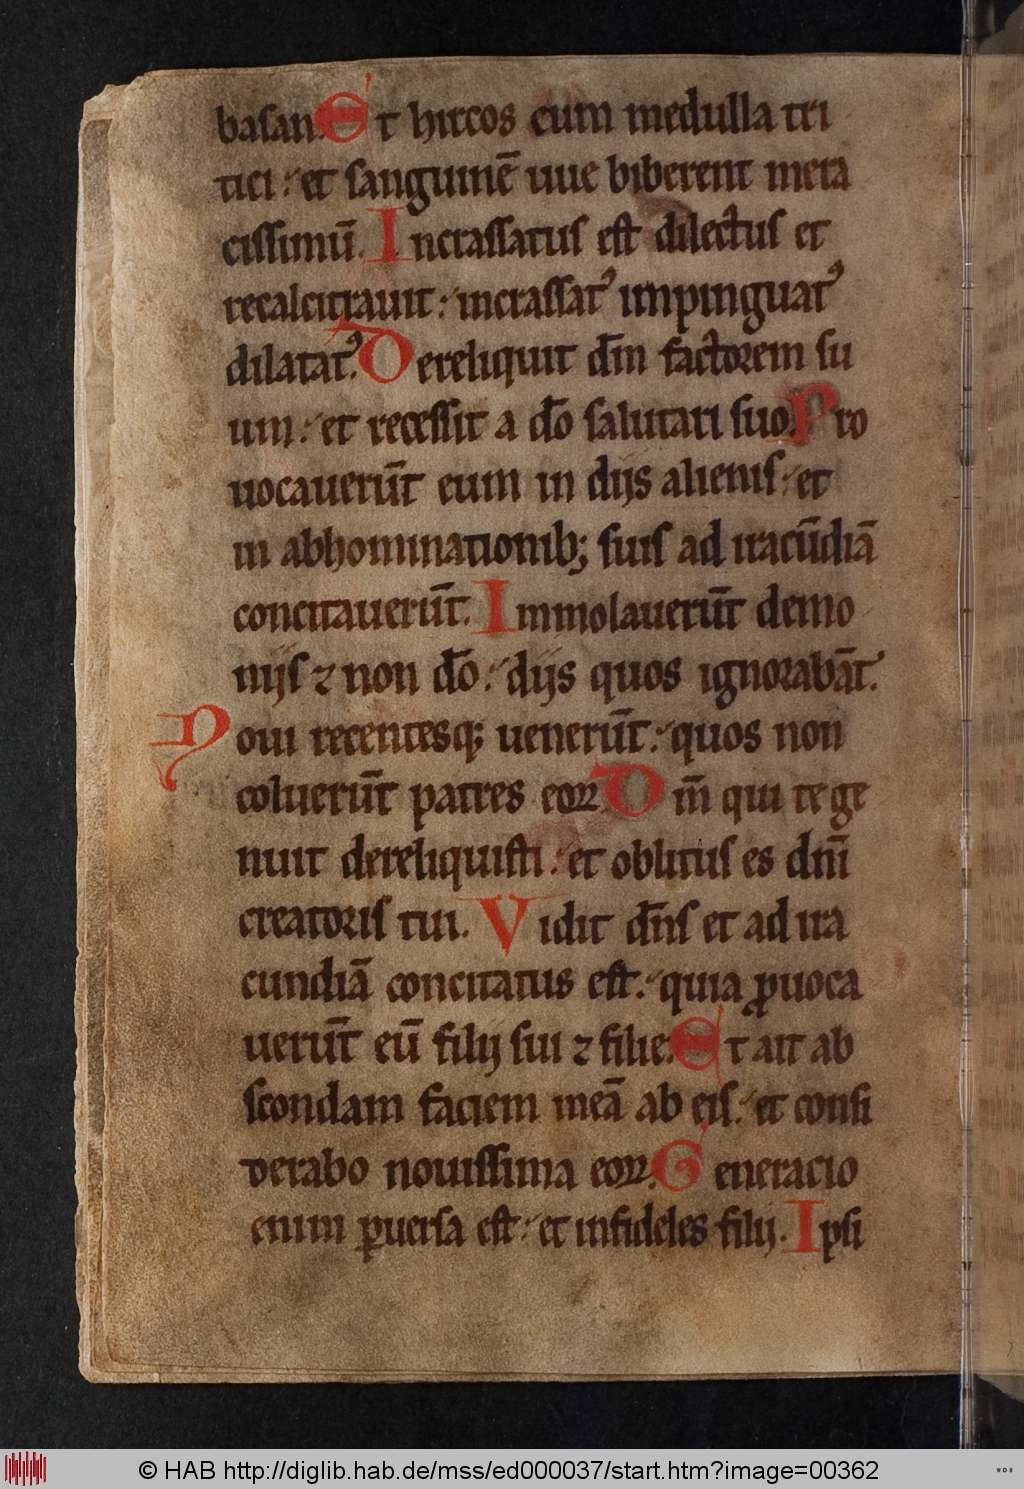 basan. Et hircos cum medulla tri
tici : et sanguinē uue biberent mera
cissimū. Incrassatus est dilectus et
recalcitrauit : incrassatꝰ impinguatꝰ
dilatatꝰ. Dereliquit dm̄ factorem su
um : et recessit a do̅ salutari suo. Pro
uocauerūt eum in dijs alienis : et
in abhominationib; suis ad iracūdiā
concitauerūt. Immolauerūt demo
nijs ⁊ non do̅ : dijs quos ignorabāt.
Noui recentesq; uenerūt : quos non
coluerūt patres eoꝝ. Dm̄ qui te ge
nuit dereliquisti : et oblitus es dnī
creatoris tui. Vidit dn̄s et ad ira
cundiā concitatus est : quia ꝓuoca
uerūt eū filij sui ⁊ filie. Et ait ab
scondam faciem meā ab eis : et consi
derabo nouissima eoꝝ. Generacio
enim ꝑuersa est : et infideles filij. Ipsi
© HAB http://diglib.hab.de/mss/ed000037/start.htm?image=00362